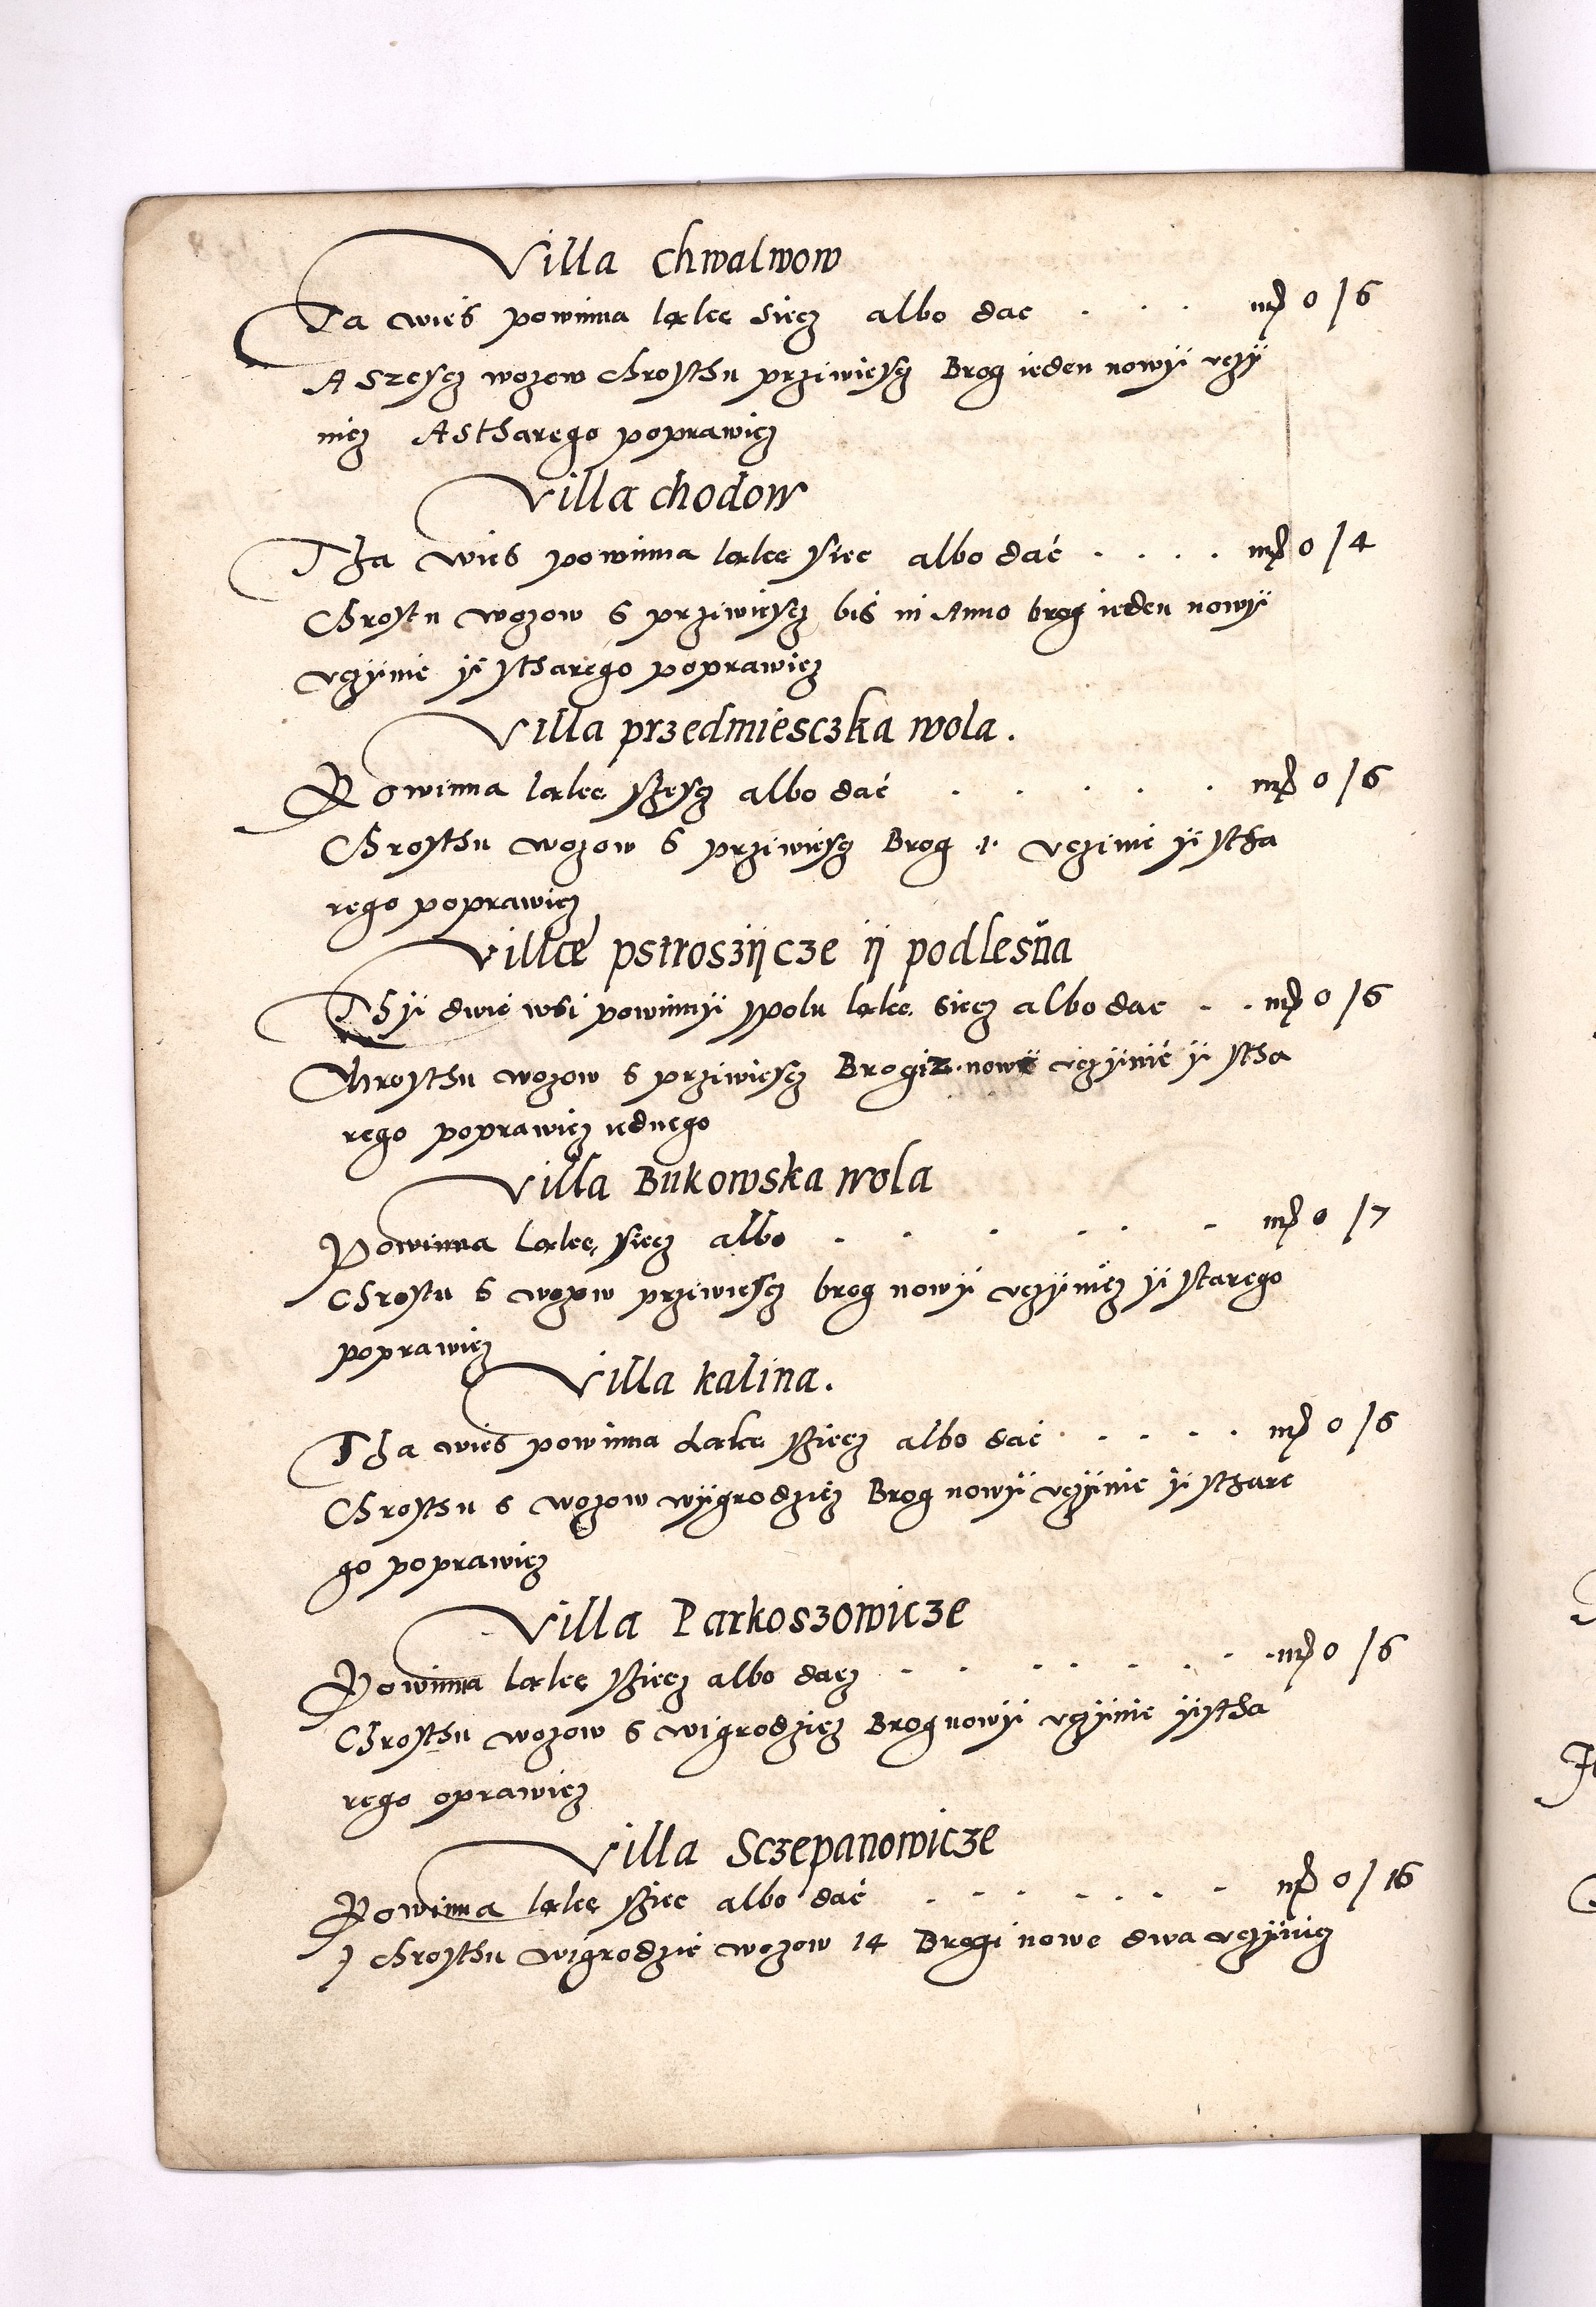 Villa Chwalwow
Ta wies powinna ląkę siecz albo dac . . . mr 0 / 6
A szescz wozow chrosthu prziwiescz Brog ieden nowÿ vczÿ
nicz A stharego poprawicz
Villa chodow
Tha wies powinna ląkę siec albo dać . . . . mr 0 / 4
Chrostu wozow 6 prziwiescz bis in Anno brog ieden nowÿ
vczÿnic ÿ stharego poprawicz
Villa przedmiesczka wola .
Powinna ląkę szescz albo dać . . . . . mr 0 / 6
Chrosthu wozow 6 prziwiescz Brog .1. vczinic ÿ stha
rego poprawicz
Villæ pstroszÿcze ÿ podlesna
Thÿ dwie wsi powinnÿ spolu ląkę siecz albo dac . . mr 0 / 6
Chrosthu wozow 6 prziwiescz Brogi 2. nowe vczÿnić ÿ stha
rego poprawicz iednego
Villa Bukowska wola
Powinna Ląkę siecz albo . . . . . mr 0 / 7
Chrostu 6 wozow prziwiescz brog nowÿ vczÿnicz ÿ starego
poprawicz
Villa kalina .
Tha wies powinna Ląkę sziecz albo dać . . . . . mr 0 / 6
Chrosthu 6 wozow wÿgrodzicz Brog nowÿ vczÿnic ÿ sthare
go poprawicz
Villa Parkoszowicze
Powinna Ląkę sziecz albo dacz . . . . . . . . mr 0 / 6
Chrosthu wozow 6 wigrodzicz Brog nowÿ vczÿnic ÿ stha
rego oprawicz
Villa Sczepanowicze
Powinna ląkę sziec albo dać . . . . . . . mr 0 / 16
J chrosthu wigrodzic wozow 14 Brogi nowe dwa vczÿnicz